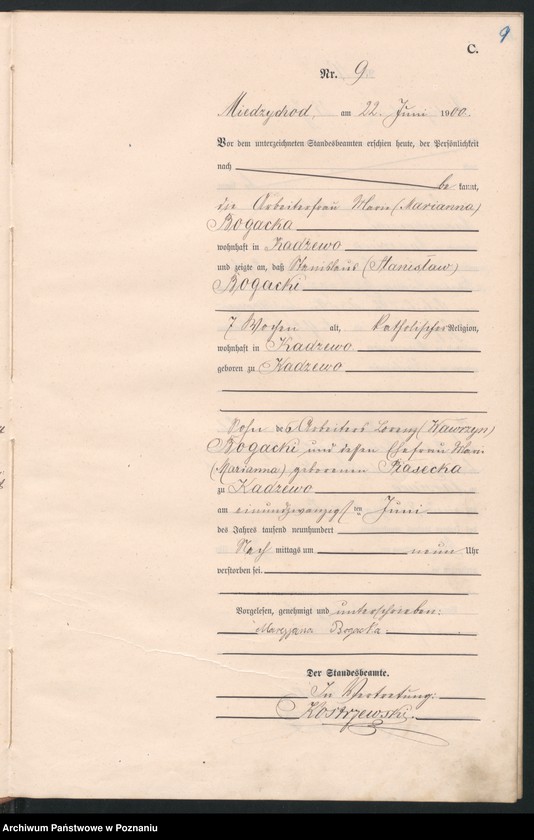 9
C.
Nr. 9
Miedzychod, am 22. Juni 1900.
Vor dem unterzeichneten Standesbeamten erschien heute, der Persönlichkeit
nach
be kannt,
die Arbeiterfrau Marie (Marianna)
Rogacka
wohnhaft in Kadzewo
und zeigte an, daß Stanislaus (Stanisław)
Rogacki
7 Wochen alt, katholischer Religion,
wohnhaft in Kadzewo
geboren zu Kadzewo
Sohn des Arbeiters Lorenz (Wawrzyn)
Rogacki und dessen Ehefrau Marie
(Marianna) geborenen
zu Kadzewo
am einundzwanzigsten Juni
des Jahres tausend neunhundert
Nach mittags um neun Uhr
verstorben sei.
Vorgelesen, genehmigt und unterschrieben:
Maryjana Rogacka
Der Standesbeamte.
In Vertretung:
Kostrzewski.
Archiwum Państwowe w Poznaniu